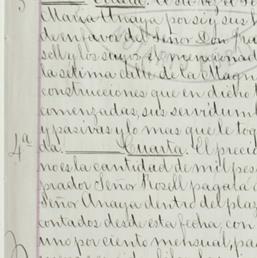 María Anaya por sí y sus
de en favor del Señor Don
sell y los suyos el menciona
la setima calle de la Magn
construcciones que en dicho
comenzadas, sus servidum
y pasivas y lo mas que le toq
4ª da. Cuarta. El preci
no es la cantidad de mil pes
prador Señor Rosell pagará
Señor Anaya dentro del plaz
contados desde esta fecha, con
uno por ciento mensual, pa